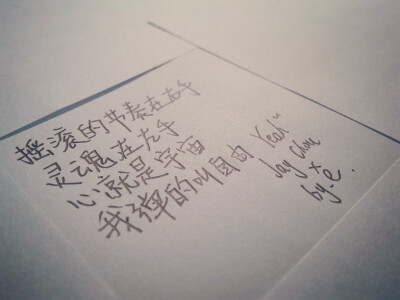 摇滚的节奏在右手
灵魂在左手
心就是宇宙
我弹的叫自由 Yeah"
Jay Chou
x
by.e.